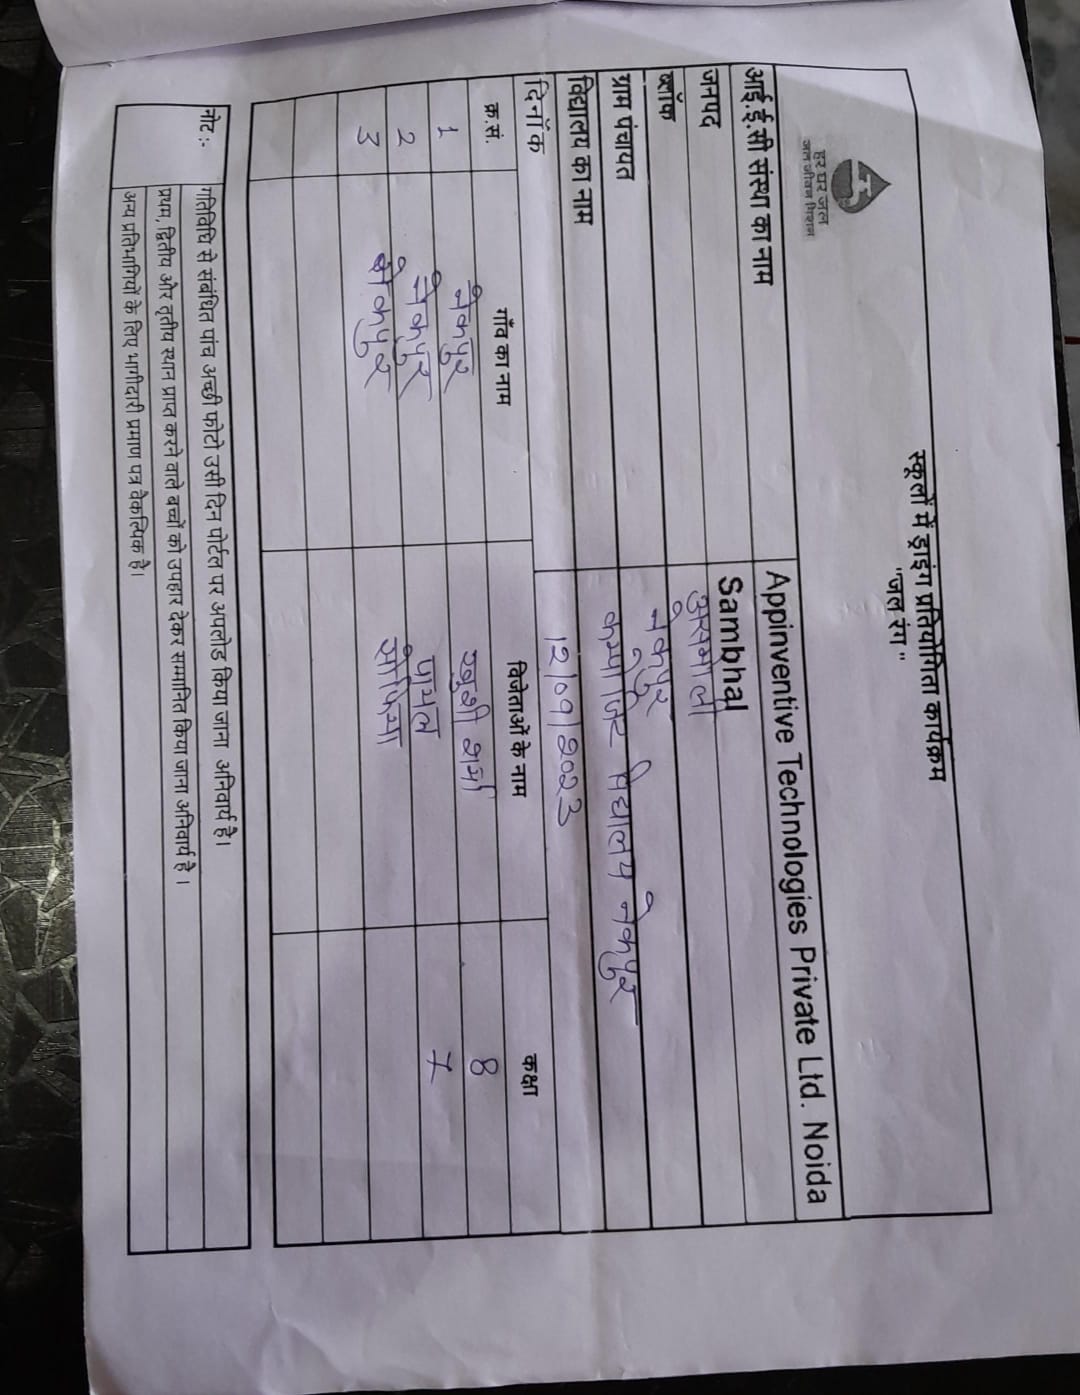 स्कूलों में ड्राइंग प्रतियोगिता कार्यक्रम
"जल रंग"
हर घर जल
जल जीवन मिशन
आई.ई.सी संस्था का नाम Appinventive Technologies Private Ltd. Noida
जनपद Sambhal
ब्लॉक असमोली
ग्राम पंचायत नेकपुर
विद्यालय का नाम विद्यालय नेकपुर
दिनॉक 12/09/2023
क्र.सं. गाँव का नाम विजेताओं के नाम कक्षा
1 नेकपुर खुशी शर्मा 8
2 नेकपुर पायल 7
3
नोट :- गतिविधि से संबंधित पांच अच्छी फोटो उसी दिन पोर्टल पर अपलोड किया जाना अनिवार्य है।
प्रथम, द्वितीय और तृतीय स्थान प्राप्त करने वाले बच्चों को उपहार देकर सम्मानित किया जाना अनिवार्य है।
अन्य प्रतिभागियों के लिए भागीदारी प्रमाण पत्र वैकल्पिक है।